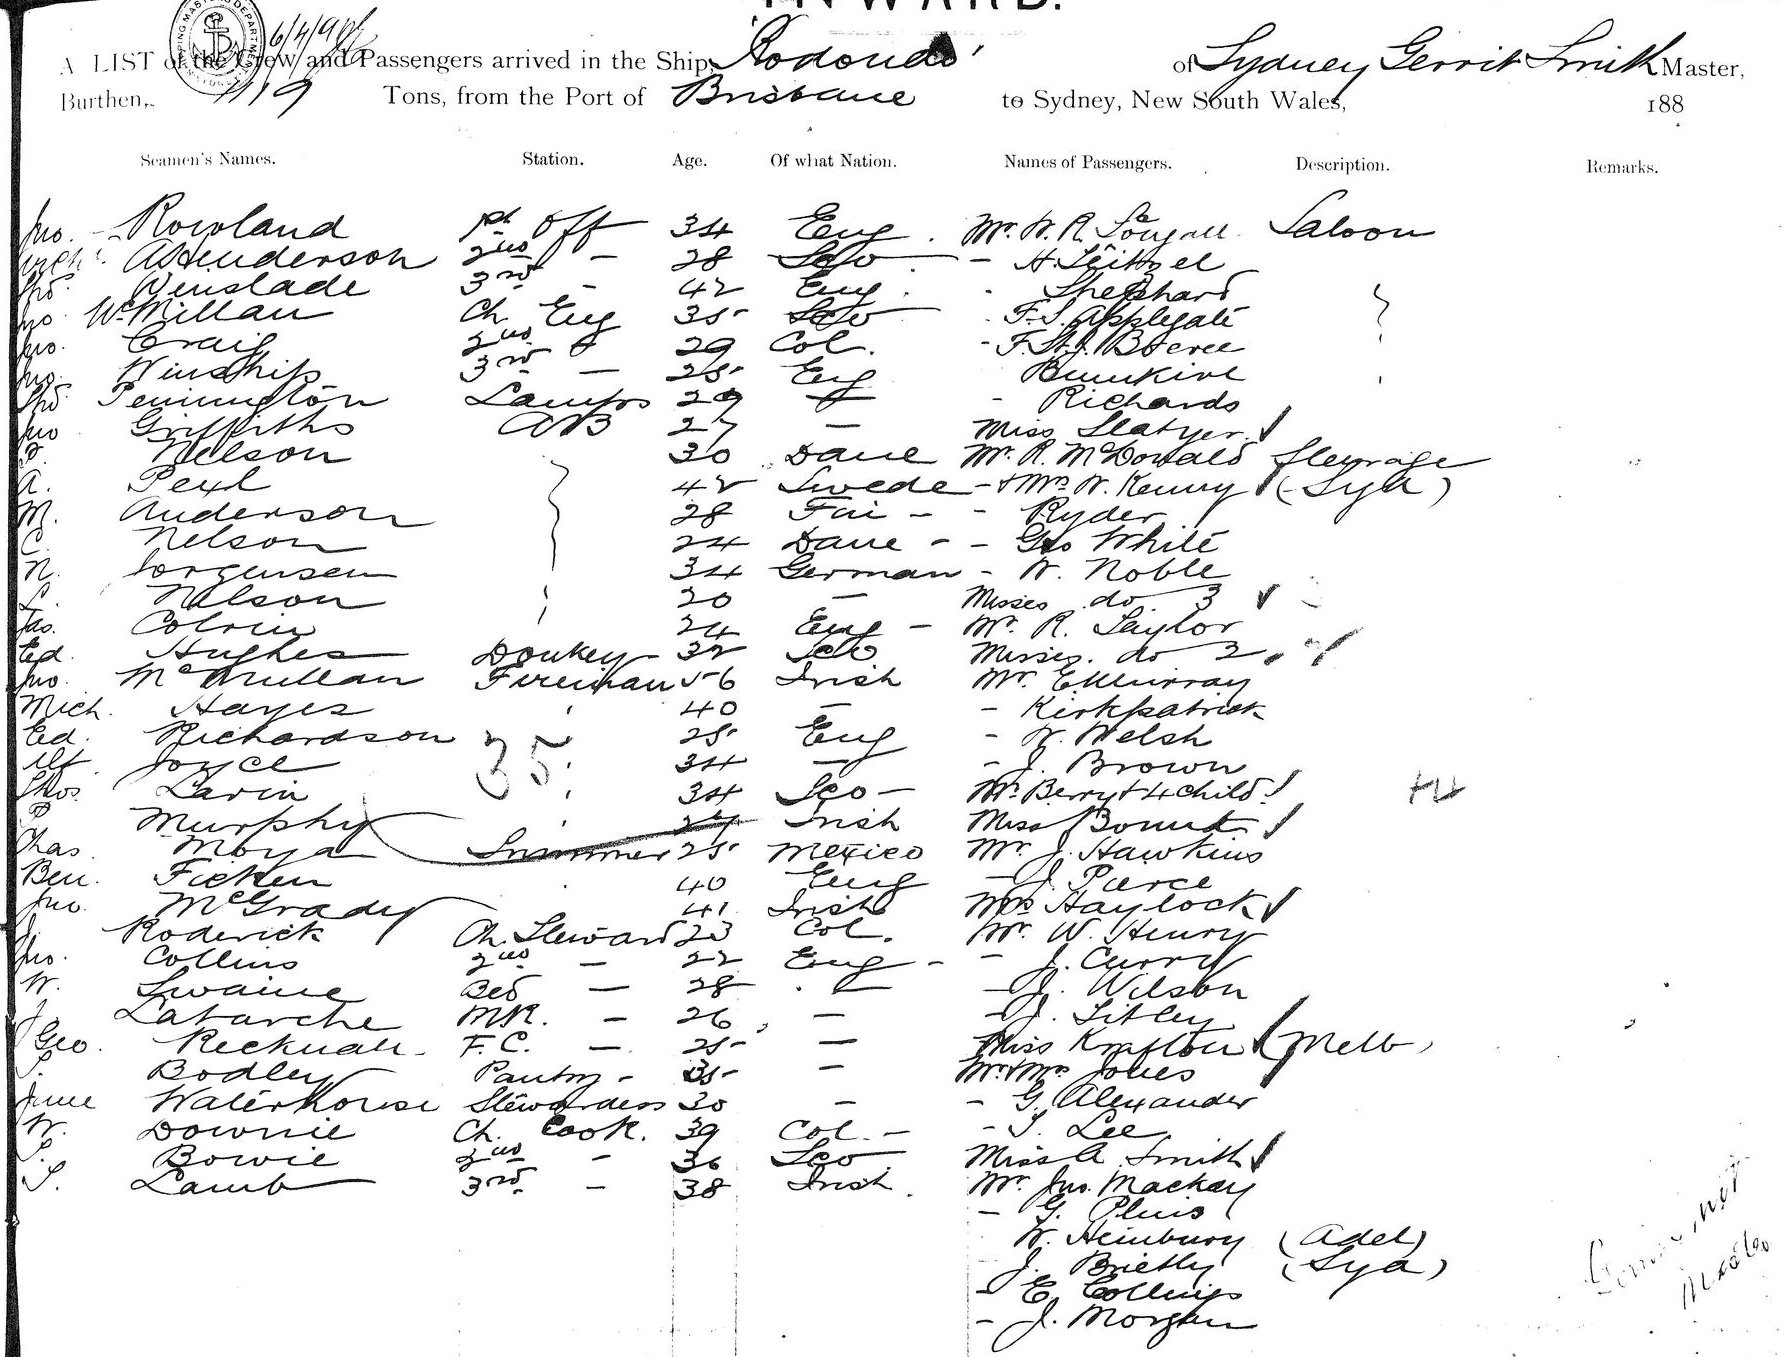 INWARD.
6/4/98
A LIST of the Crew and Passengers arrived in the Ship, 'Rodondo' of Sydney Gerrit Smith Master,
Burthen, 1119 Tons, from the Port of Brisbane to Sydney, New South Wales, 188
Seamen's Names. Station. Age. Of what Nation. Names of Passengers. Description. Remarks.
Jno. Rowland 1st Off 34 Eng. Mr. W. R. Saloon
Arch. Henderson 2nd - 28 Sco - H.
Tho. Winslade 3rd - 42 Eng. Shephard
Jno. McMillan Ch. Eng 35 Sco F. S. Applegate
Jno. Craig 2nd 29 Col. - F. St. J.
Jno. Winship 3rd - 25 Eng
Tho. Pennington Lamps 29 - - Richards
Jno Griffiths AB 27 - Miss Slatyer
Nelson 30 Dane Mr. R. McDonald Steerage
A. 42 Swede - + Mrs W. Kenny (Syd)
M. Anderson 28 Fin - - Ryder
C. Nelson 24 Dane - - Geo White
N. Jorgensen 34 German - W. Noble
L. Nelson 20 - Misses do 3
Jas. Colvin 24 Eng - Mr. R. Taylor
Ed. Hughes Donkey 32 Sco Misses. do 2
Jno. McMullan Fireman 56 Irish Mr. E. Murray
Mich. Hayes 40 - - Kirkpatrick
Ed. Richardson 25 Eng - W. Welsh
35
Alf. Joyce 34 - - J. Brown
Thos. Lavin 34 Sco - Mrs Berry + 4 Child. +4
P. Murphy 24 Irish Miss Bound
Chas. Moya Trimmer 25 Mexico Mr. J. Hawkins
Ben. Ficken 40 Eng - J. Pierce
Jno. McGrady 41 Irish Mrs Haylock
J. Roderick Ch. Steward 23 Col. Mr. W. Henry
Jno. Collins 2nd - 22 Eng - - J. Curry
W. Swaine Bed - 28 - - J. Wilson
J. Labarche MR. - 26 - - J. Sibley
Geo. F. C. - 25 - Miss Krafton (Melb)
Bodley Pantry - 35 - Mr + Mrs Jones
June Waterhouse Stewardess 30 - - G. Alexander
W. Downie Ch. Cook. 39 Col. - - T. Lee
Bowie 2nd - 36 Sco Miss A Smith
S. Lamb 3rd - 38 Irish. Mr. Jno. Mackay
- G.
W. Heinbury (Adel)
J. Brietly (Syd)
- E. Collings
- J. Morgan